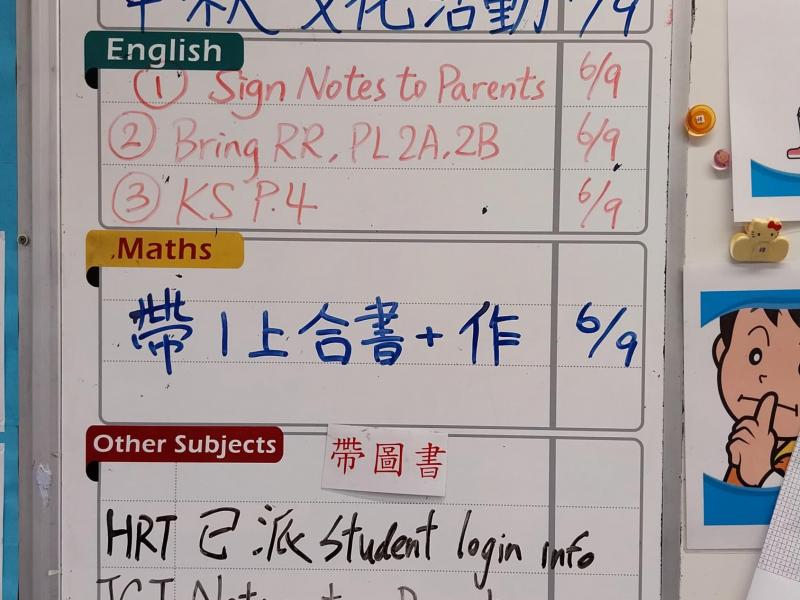 中秋文化活動 7/9
English
① Sign Notes to Parents 6/9
② Bring RR, PL 2A, 2B 6/9
③ KS P.4 6/9
Maths
帶1上合書+作 6/9
Other Subjects
帶圖書
HRT 已派 student login info